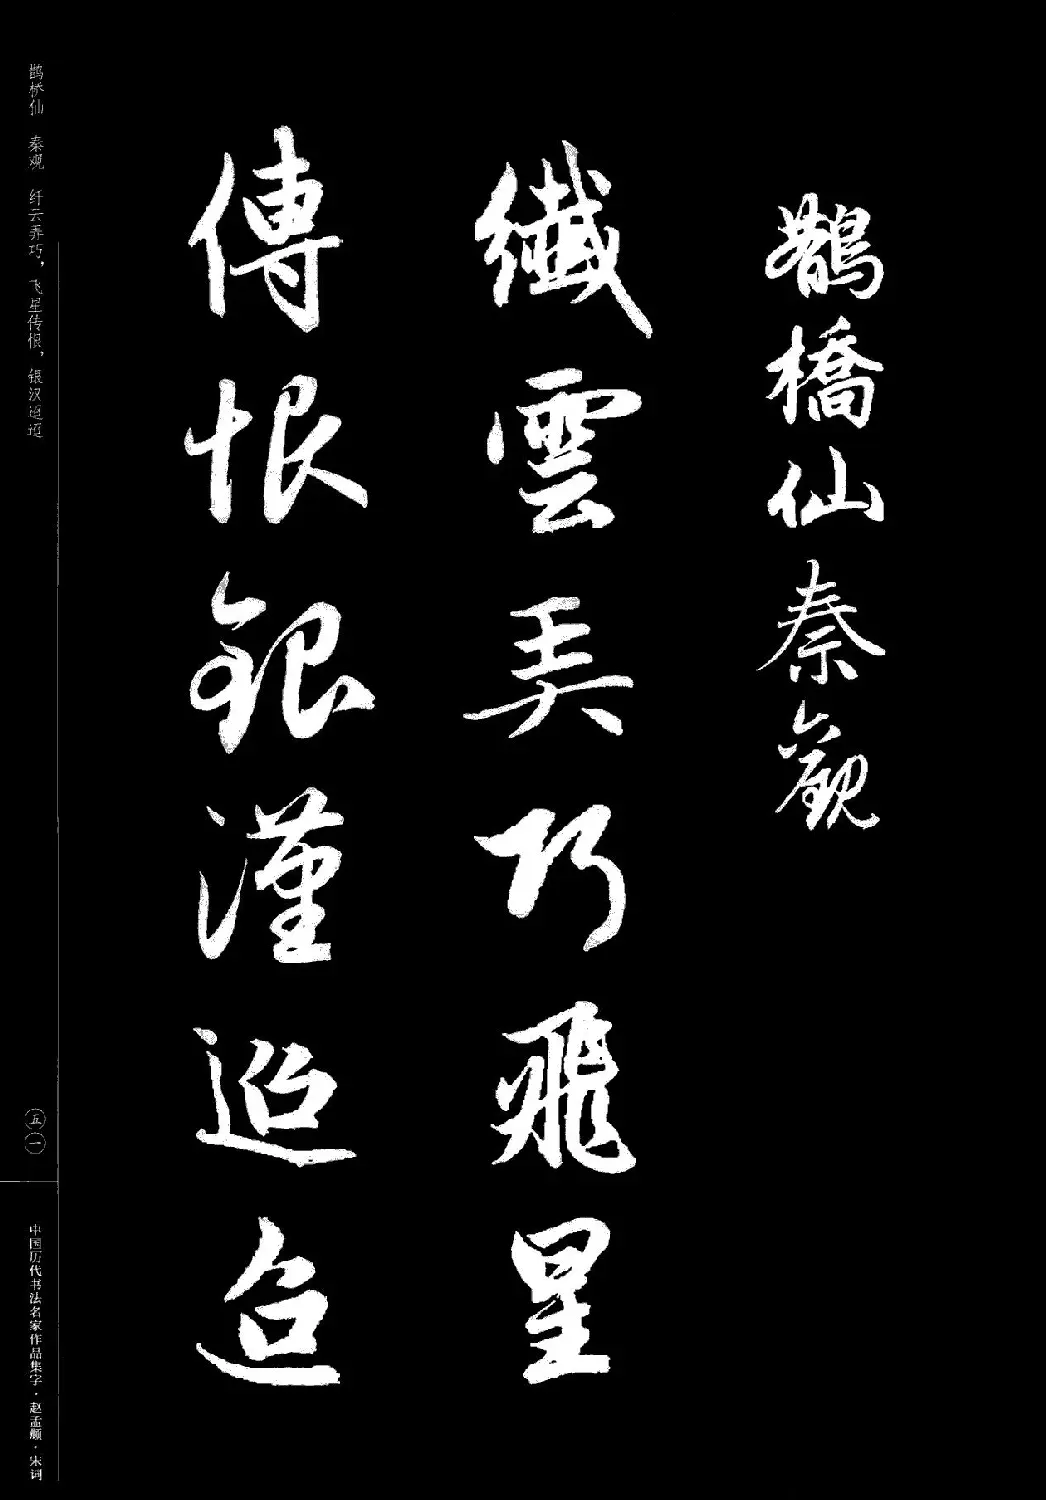 鵲橋仙秦觀
纖雲弄巧飛星
傳恨銀漢迢迢
鹊桥仙 秦观 纤云弄巧，飞星传恨，银汉迢迢
五一
中国历代书法名家作品集字·赵孟頫·宋词